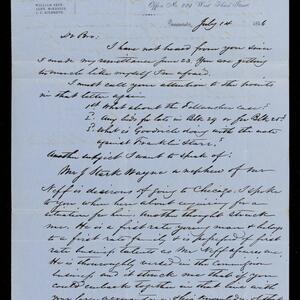 WILLIAM NEFF,
Office No. 224 West Third Street
July 14 1856
Dr Bro:
I have not heard from you since
I made my remittance June 23. You are getting
too much like myself I am afraid.
I must call your attention to the points
in that letter again
1st What about the case?
2. Any bids for lots in Blk 29 or for Blk 25?
3. What is Goodrich doing with the note
against Franklin Starr?
Another subject I want to speak of:
Mr J Stark Wayne a nephew of Mr
Neff is desirous of going to Chicago. I spoke
to you when here about enquiring for a
situation for him. Another thought struck
me. He is a first rate young man & belongs
to a first rate family & is possessed of first
rate business talents as Mr Neff assures me.
He is thoroughly versed in the
business and it struck me that if you
could embark together in that line with